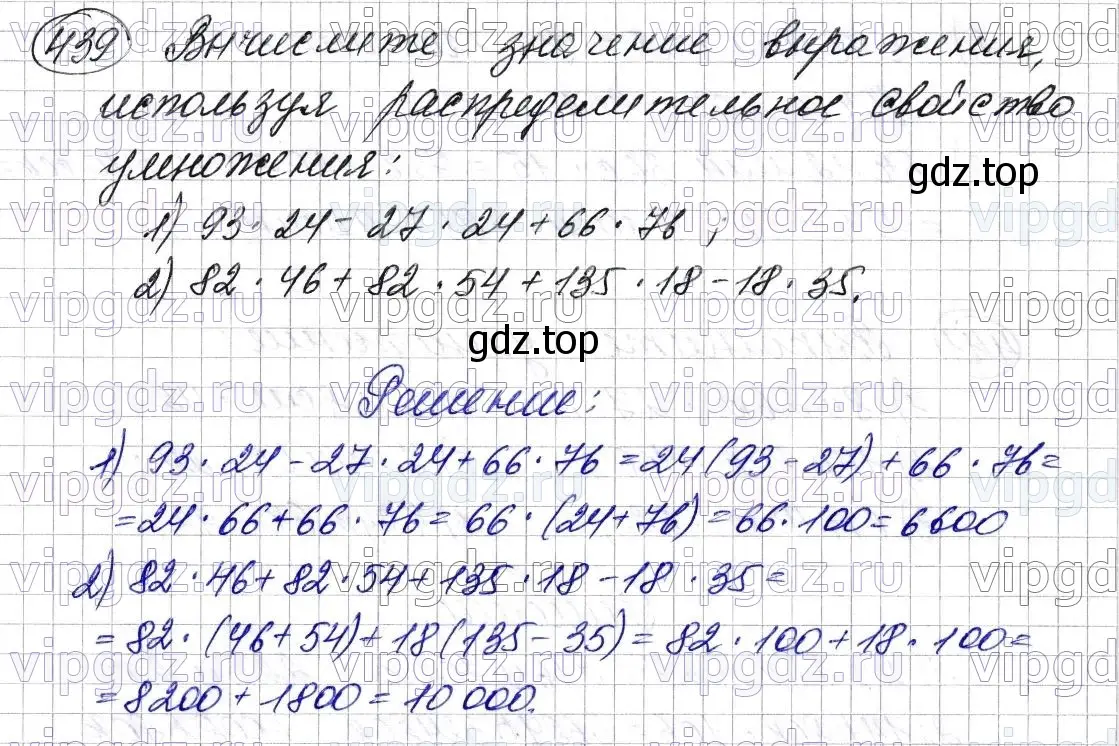 439 Вычислите значение выражения,
используя распределительное свойство
умножения:
gdz.top
1) 93 · 24 - 27 · 24 + 66 · 76 ;
2) 82 · 46 + 82 · 54 + 135 · 18 - 18 · 35.
gdz.top
Решение:
1) 93 · 24 - 27 · 24 + 66 · 76 = 24 (93 - 27) + 66 · 76 =
= 24 · 66 + 66 · 76 = 66 · (24 + 76) = 66 · 100 = 6600
2) 82 · 46 + 82 · 54 + 135 · 18 - 18 · 35 =
= 82 · (46 + 54) + 18 (135 - 35) = 82 · 100 + 18 · 100 =
= 8200 + 1800 = 10 000.
vipgdz.ru